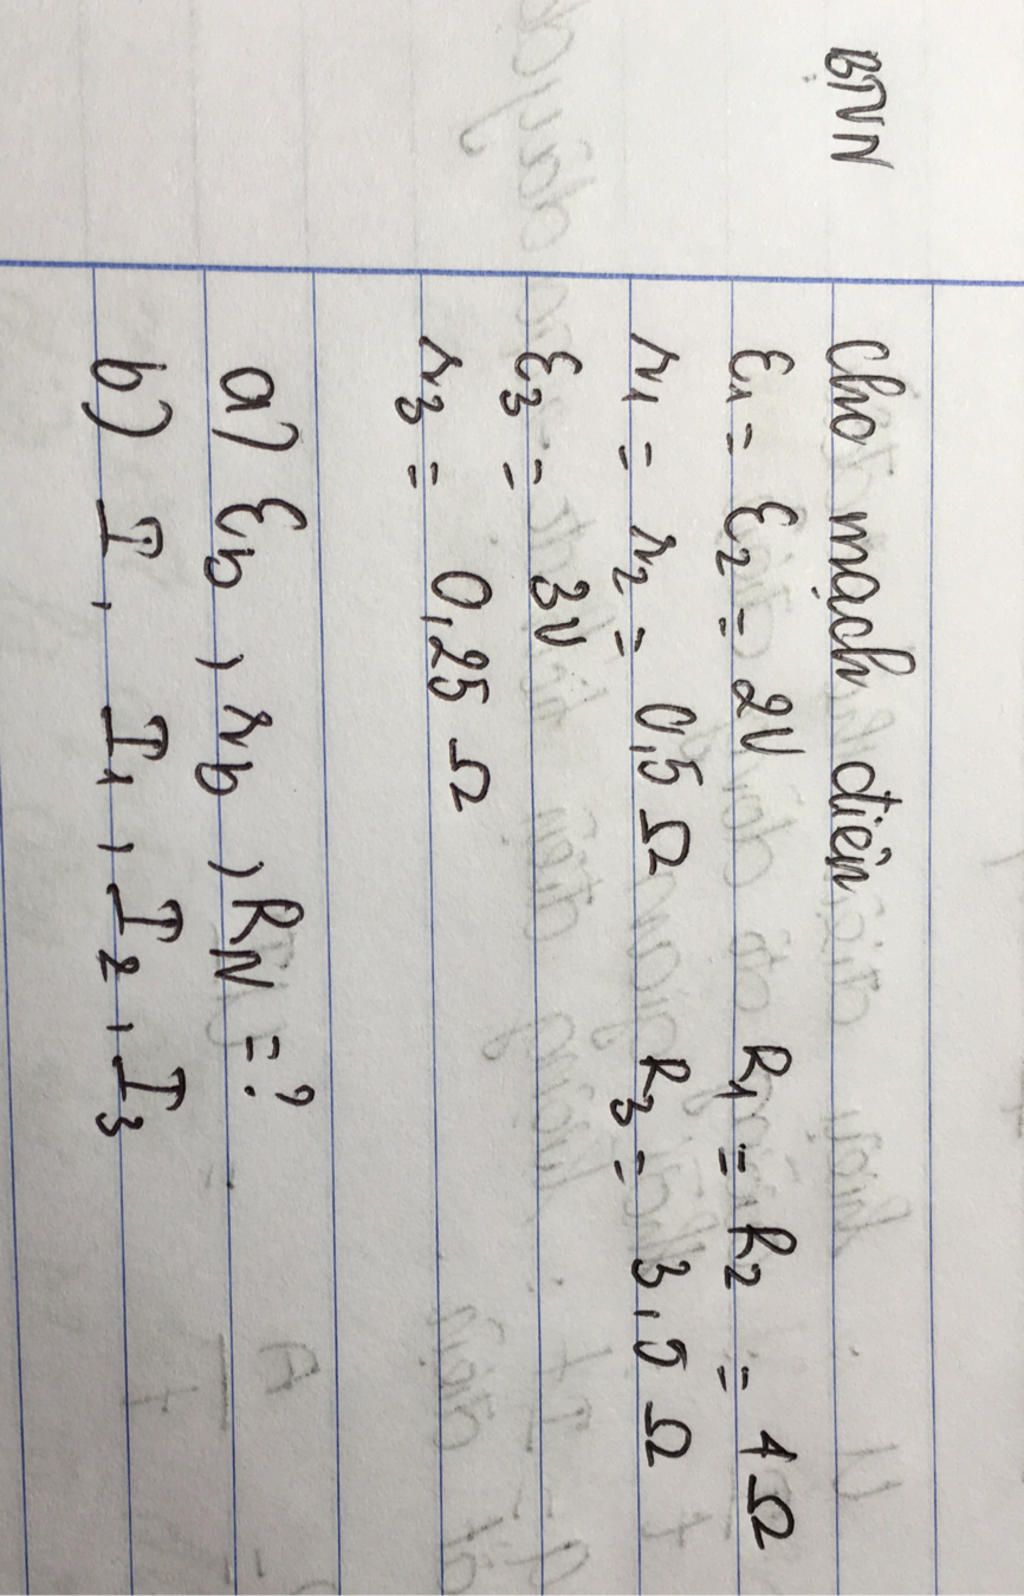 BTVN
Cho mạch điện
ε1 = ε2 = 2V R1 = R2 = 1Ω
r1 = r2 = 0,5 Ω R3 = 3,5 Ω
ε3 = 3V
r3 = 0,25 Ω
a) εb, rb, RN = ?
b) I, I1, I2, I3